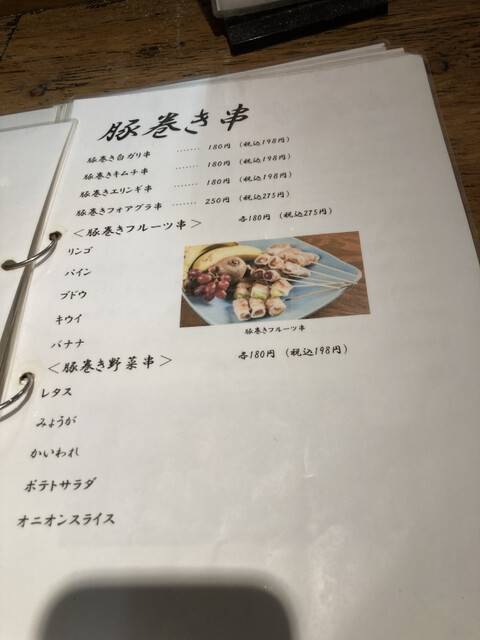 豚巻き串
豚巻き白ガリ串 ……… 180円 (税込198円)
豚巻きキムチ串 ……… 180円 (税込198円)
豚巻きエリンギ串 ……… 180円 (税込198円)
豚巻きフォアグラ串 ……… 250円 (税込275円)
＜豚巻きフルーツ串＞ 各180円 (税込275円)
リンゴ
パイン
ブドウ
キウイ
バナナ
豚巻きフルーツ串
＜豚巻き野菜串＞ 各180円 (税込198円)
レタス
みょうが
かいわれ
ポテトサラダ
オニオンスライス